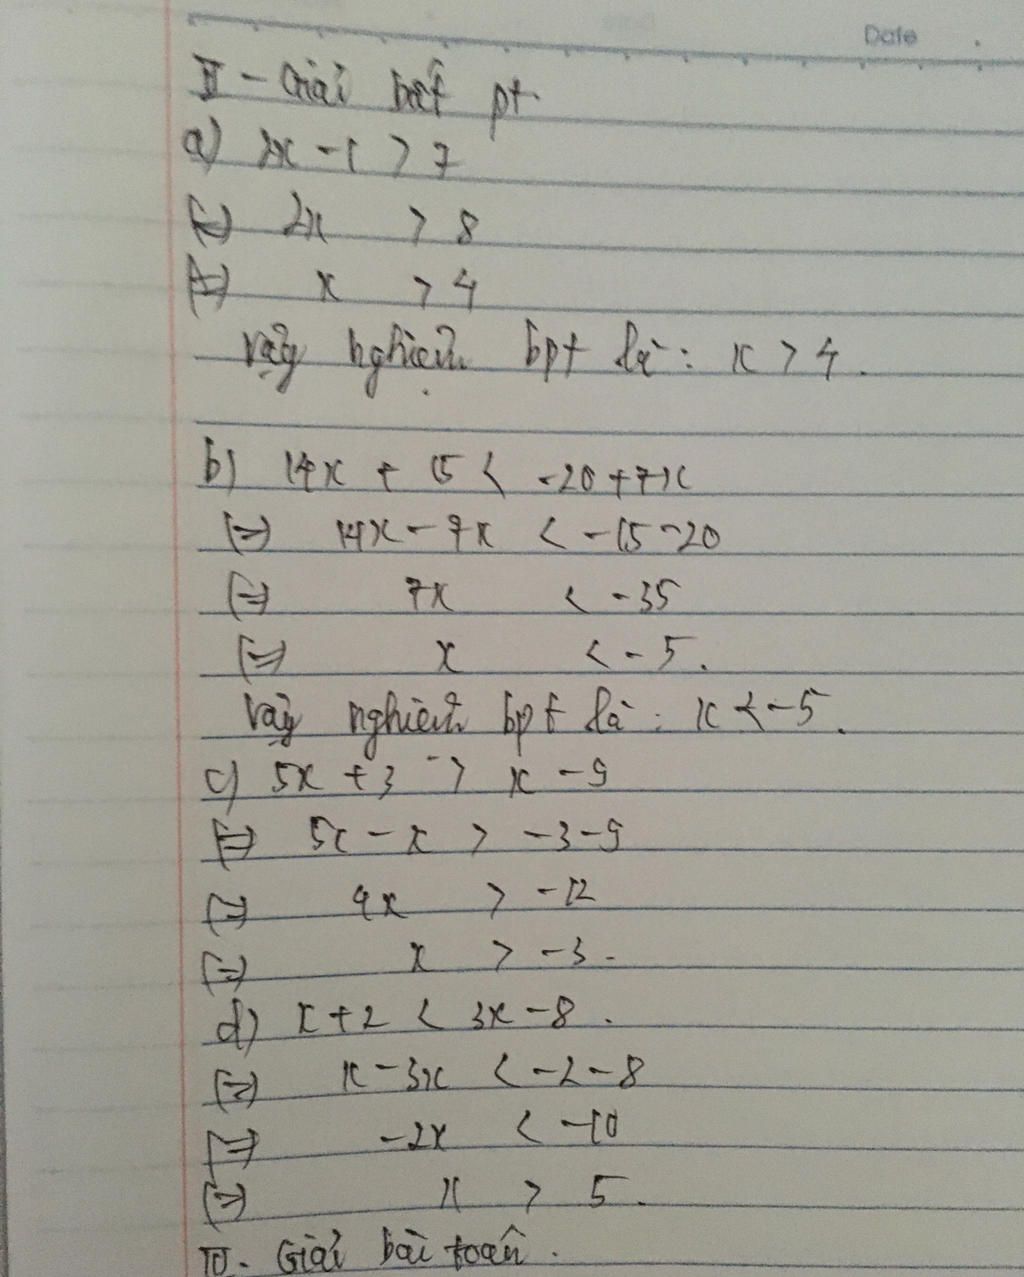 Date
II - Giải bất pt
a) 2x - 1 > 7
(=) 2x > 8
(=) x > 4
Vậy nghiệm bpt là : x > 4.
b) 14x + 15 < -20 + 7x
(=) 14x - 7x < -15 - 20
(=) 7x < -35
(=) x < -5.
Vậy nghiệm bpt là : x < -5.
c) 5x + 3 > x - 9
(=) 5x - x > -3 - 9
(=) 4x > -12
(=) x > -3.
d) x + 2 < 3x - 8.
(=) x - 3x < -2 - 8
(=) -2x < -10
(=) x > 5.
III. Giải bài toán.